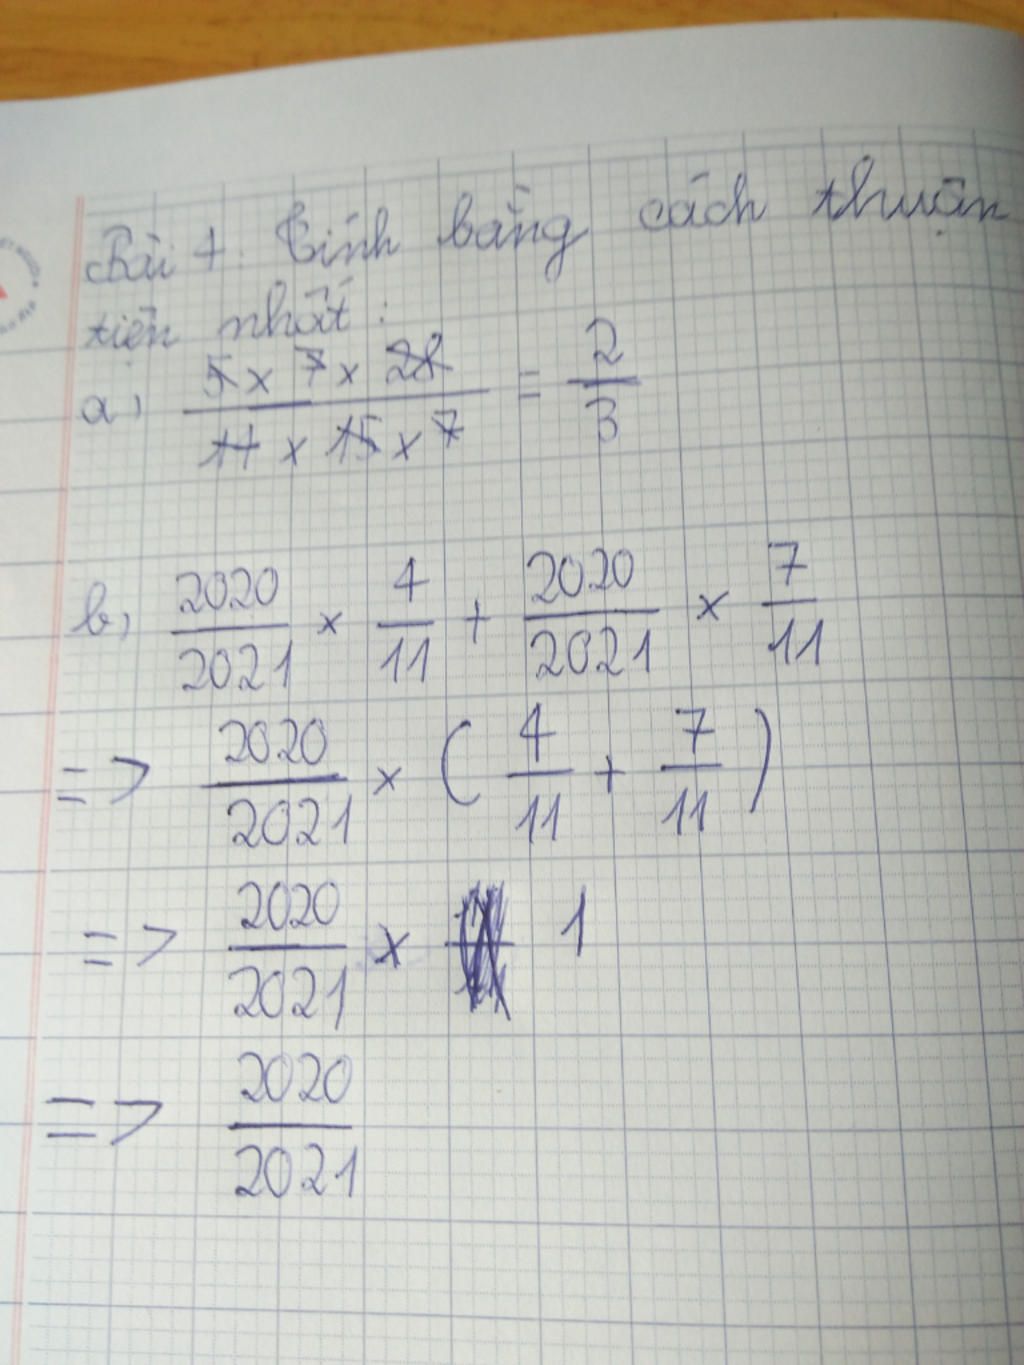 Bài 4: Tính bằng cách thuận
tiện nhất:
a, (5 x 7 x 22) / (11 x 15 x 7) = 2/3
b, 2020/2021 x 4/11 + 2020/2021 x 7/11
=> 2020/2021 x ( 4/11 + 7/11 )
=> 2020/2021 x 1
=> 2020/2021